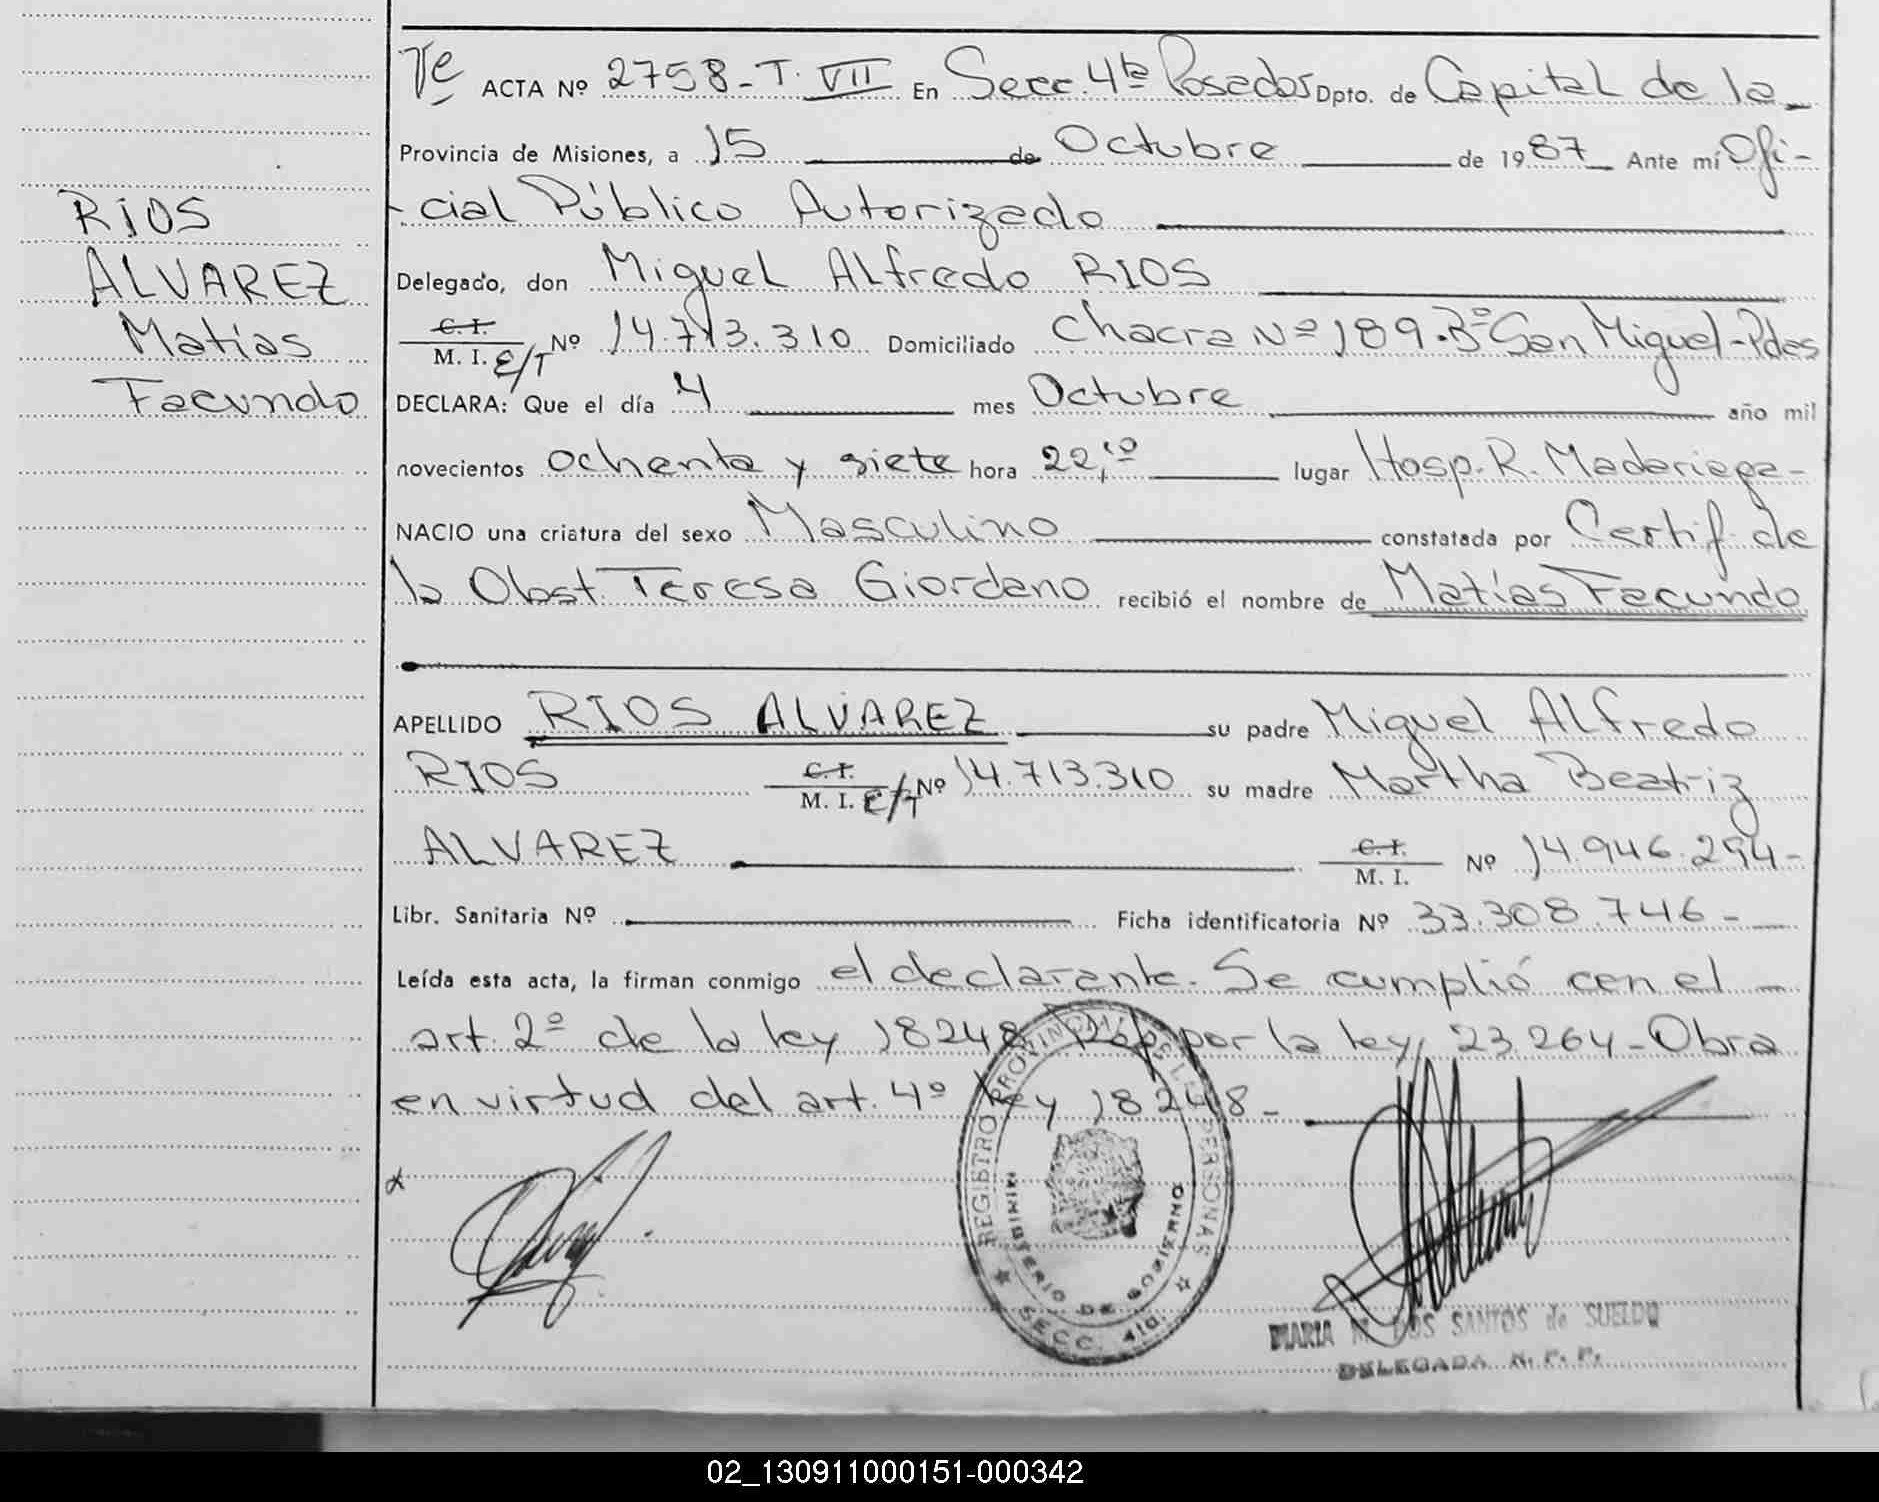 RIOS
ALVAREZ
Matías
Facundo
Te ACTA Nº 2758-T. VII En Secc. 4ta Posadas Dpto. de Capital de la-
Provincia de Misiones, a 15 de Octubre de 1987 Ante mí Ofi-
-cial Público Autorizado
Delegado, don Miguel Alfredo RIOS
C.I.
M. I. E/T Nº 14.713.310 Domiciliado Chacra Nº 189.Bº San Miguel-Pdas
DECLARA: Que el día 4 mes Octubre año mil
novecientos ochenta y siete hora 22,10 lugar Hosp. R. Madariaga-
NACIO una criatura del sexo Masculino constatada por Certif. de
la Obst. Teresa Giordano recibió el nombre de Matías Facundo
APELLIDO RIOS ALVAREZ su padre Miguel Alfredo
RIOS C.I. M. I. E/T Nº 14.713.310 su madre Martha Beatriz
ALVAREZ C.I. M. I. Nº 14.946.294-
Libr. Sanitaria Nº Ficha identificatoria Nº 33.308.746-
Leída esta acta, la firman conmigo el declarante. Se cumplió con el
art. 2º de la ley 18248 por la ley 23.264-Obra
en virtud del art. 4º ley 18248-
REGISTRO PROVINCIAL DE LAS PERSONAS
MINISTERIO DE GOBIERNO
SECC. 4ta.
MARIA M. DOS SANTOS de SUELDO
DELEGADA R. P. P.
02_130911000151-000342